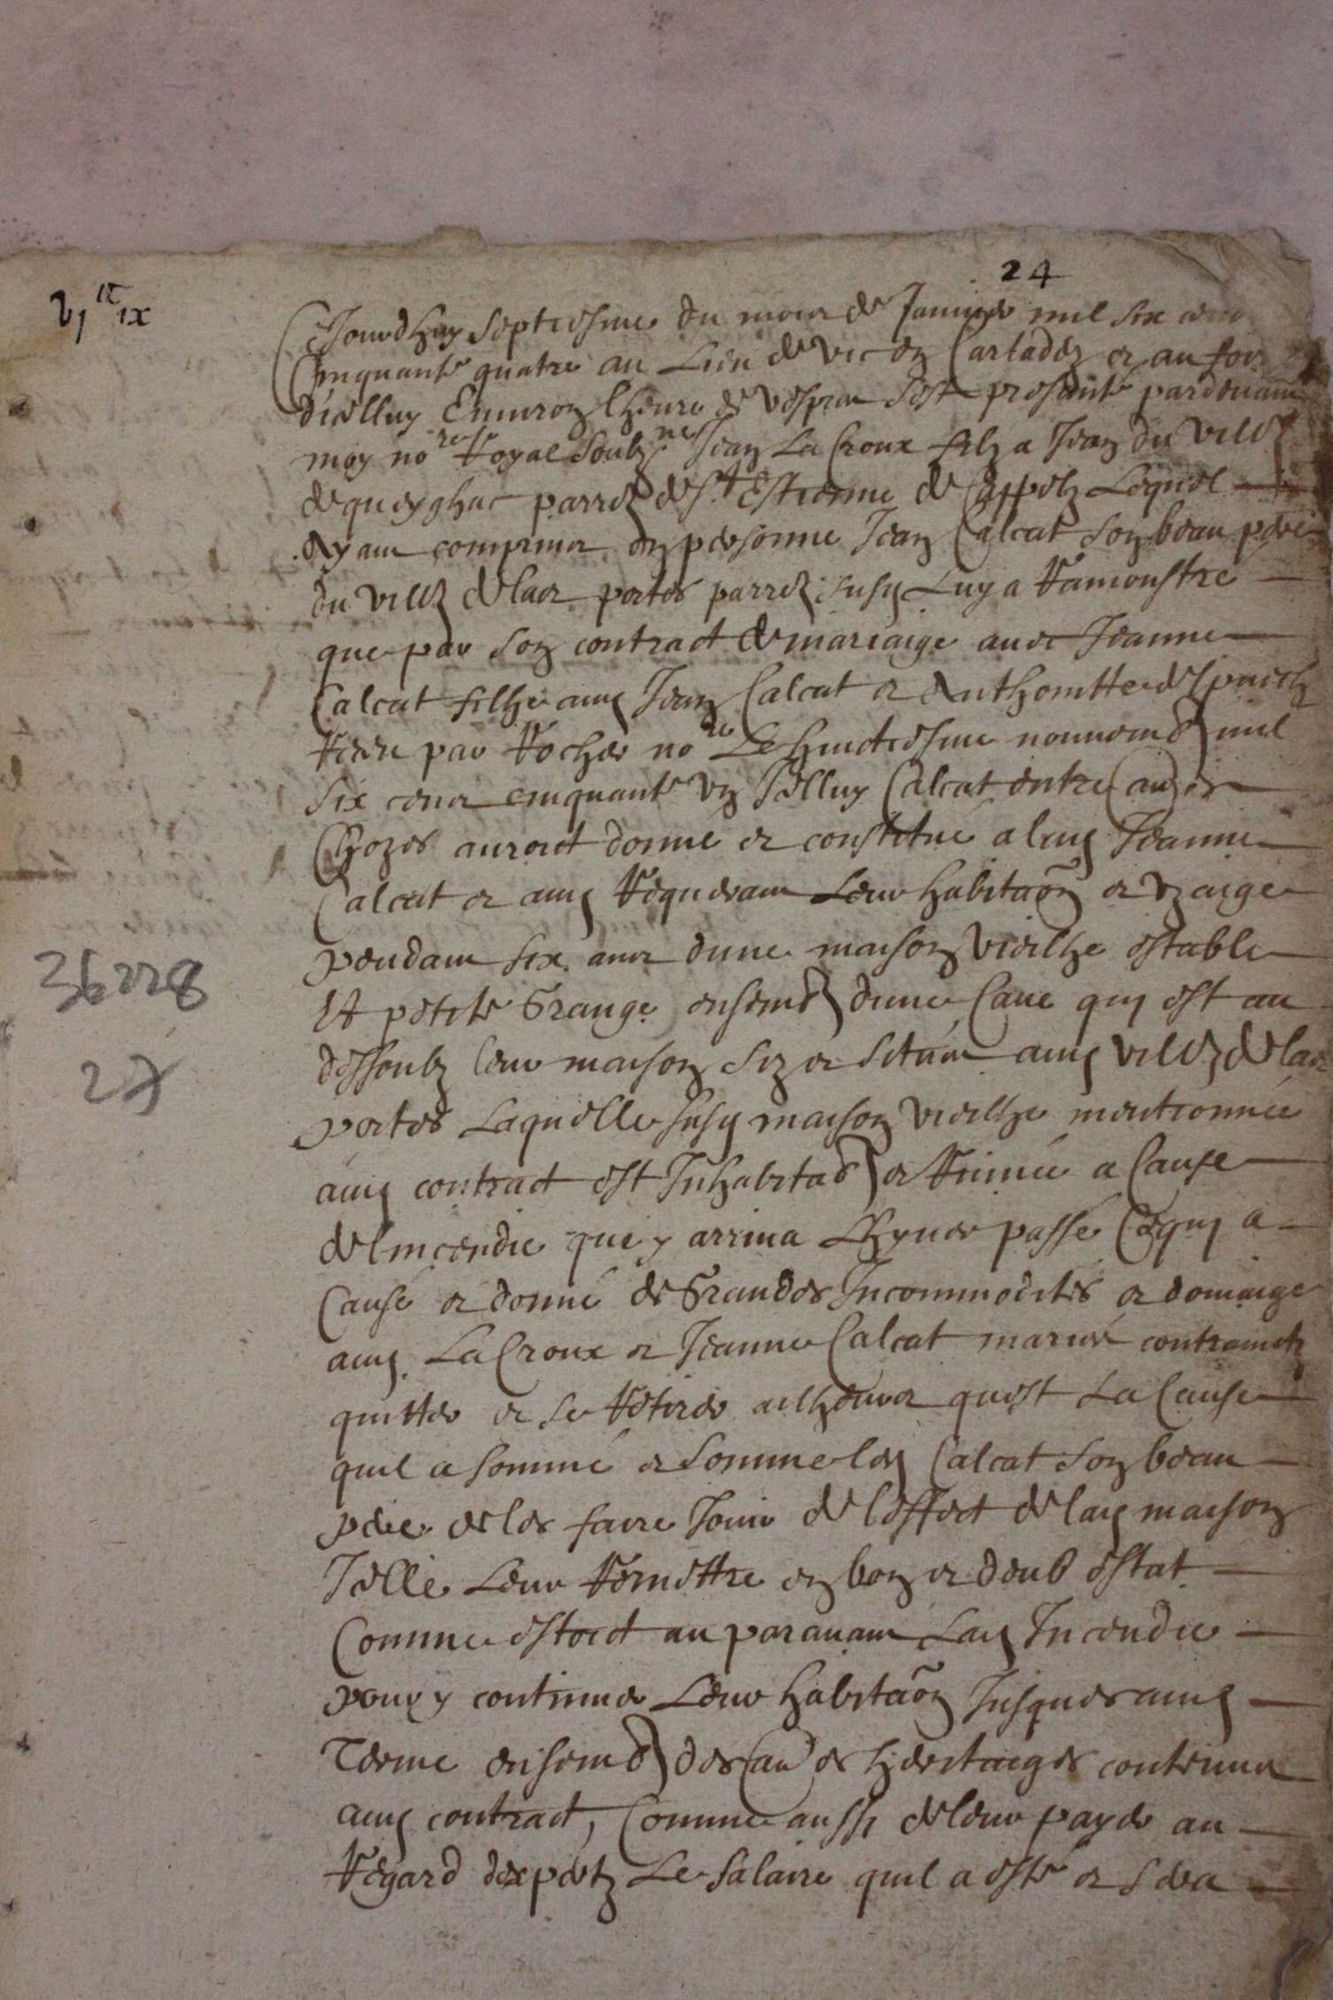 24
vj ct ix
Ce Jourdhuy septiesme du mois de Janvier mil six cens
Cinquante quatre au Lieu de vic en Carladez et au for
dicelluy Environ lheure de vespres sest presanté pardevant
moy no.re Royal soubz.ne Jean LaCroux filz a Jean du vill.
de queyghac parr. de St Estienne de Cappelz Lequel
Ayant comprins en persone Jean Calcat son beau pere
du vill. de las portes parr. susd Luy a Ramonstre
que par son contract de mariaige avec Jeanne
Calcat filhe aud Jean Calcat et Anthonitte
Receu par Rocher no.re Le huictiesme novemb. mil
six cens cinquante un Icelluy Calcat entre au.es
Chozes auroict donné et constitué a lad Jeanne
Calcat et aud Requerant Leur habitaon et uzaige
pendant six ans dune maison vieilhe estable
Et petite Grange ensemb. dune Cave quy est au
dessoubz leur maison siz et situee aud vill. de las
portes Laquelle susd maison vieilhe mentionnée
aud contract est Inhabitab. et Ruinée a Cause
de lincendie que y arriva Lhyver passé Ce quy a
Causé et donné de Grandes Incommodités et domaige
aud LaCroux et Jeanne Calcat mariés contrainctz
quitter et se Retirer ailheurs quest La Cause
quil a sommé et somme led Calcat son beau
pere de les faire Jouir de leffect de lad maison
Icelle Leur Remettre en bon et deub estat
Comme estoict au paravant Lad Incendie
pour y continuer Leur habitaon Jusques aud
Terme ensemb. des au.es heritaiges contenus
aud contract, Comme aussi de leur payer au
Regard dexpertz Le salaire quil a esté et sera
36228
27